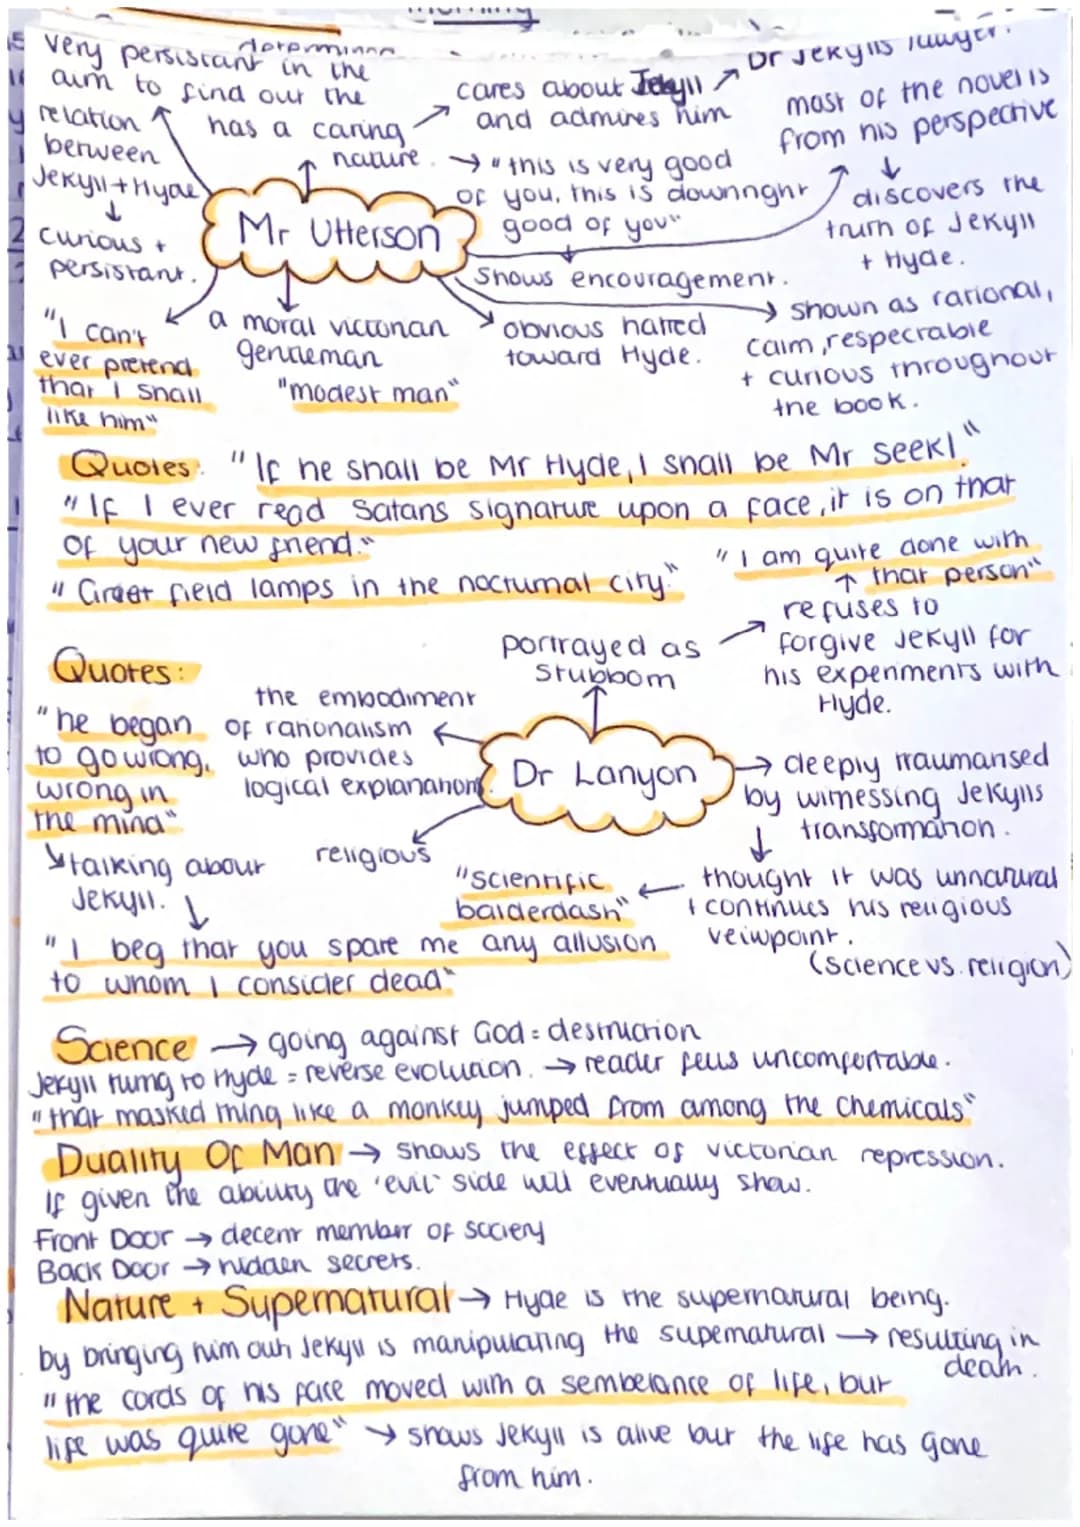 very persistant in the
aim to find out the
relation
between
Jekyll + Hyde
↓
curious +
persistant.
"I can't
ever pretend
that I shall
like him"
has a caring
nature.
cares about Jekyll
and admires him
Dr Jekylls lawyer.
→ "this is very good
of you, this is downright
good of you"
shows encouragement.
most of the novel is
from his perspective
↓
discovers the
truth of Jekyll
+ Hyde.
Mr Utterson
a moral victorian
gentleman
"modest man"
obvious hatred
toward Hyde.
shown as rational,
calm, respectable
+ curious throughout
the book.
Quotes: "If he shall be Mr Hyde, I shall be Mr Seek!"
"If I ever read Satans signature upon a face, it is on that
of your new friend."
lamps in the nocturnal city."
"I am quite done with
that person"
refuses to
forgive Jekyll for
his experiments with
Hyde.
portrayed as
stubborn
Quotes:
"he began
to go wrong,
wrong in
the mind"
talking about
Jekyll.
the embodiment
of rationalism
who provides
logical explanations.
Dr Lanyon
religious
→ deeply traumatised
by witnessing Jekylls
transformation.
↓
thought it was unnatural
+ continues his religious
veiwpoint.
(science vs. religion)
"scientific
balderdash"
"I beg that you spare me any allusion
to whom I consider dead"
Science → going against God = destruction
Jekyll turng to Hyde = reverse evolution. → reader feels uncomfortable.
"that masked thing like a monkey jumped from among the chemicals"
Duality Of Man → shows the effect of victorian repression.
If given the ability the 'evil' side will eventually show.
Front Door → decent member of society
Back Door → hidden secrets.
Nature + Supernatural → Hyde is the supernatural being.
by bringing him out Jekyll is manipulating the supernatural → resulting in
death.
"the cords of his face moved with a sembelance of life, but
life was quite gone" → shows Jekyll is alive but the life has gone
from him.